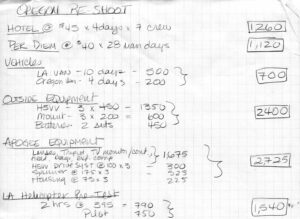 OREGON RE SHOOT
HOTEL @ $45 x 4 days x 7 crew 1260
PER DIEM @ $40 x 28 man days 1,120
VEHICLES
LA VAN - 10 days - 500
Oregon Van - 4 days - 200 700
OUTSIDE EQUIPMENT
HSVV - 3 x 450 - 1350
Mount - 3 x 200 = 600
Batteries - 2 sets 450 2400
APOGEE EQUIPMENT
Lenses, Tripod, TV monitor/cont, 1,675
HSV DRIVE SYST @ 100 x 3 - 300
Spinner @ 175 x 3 - 525
Housing @ 75 x 3 225 2725
LA Helicopter Pre-Test
2 hrs @ 395 - 790
Pilot 750 1,540